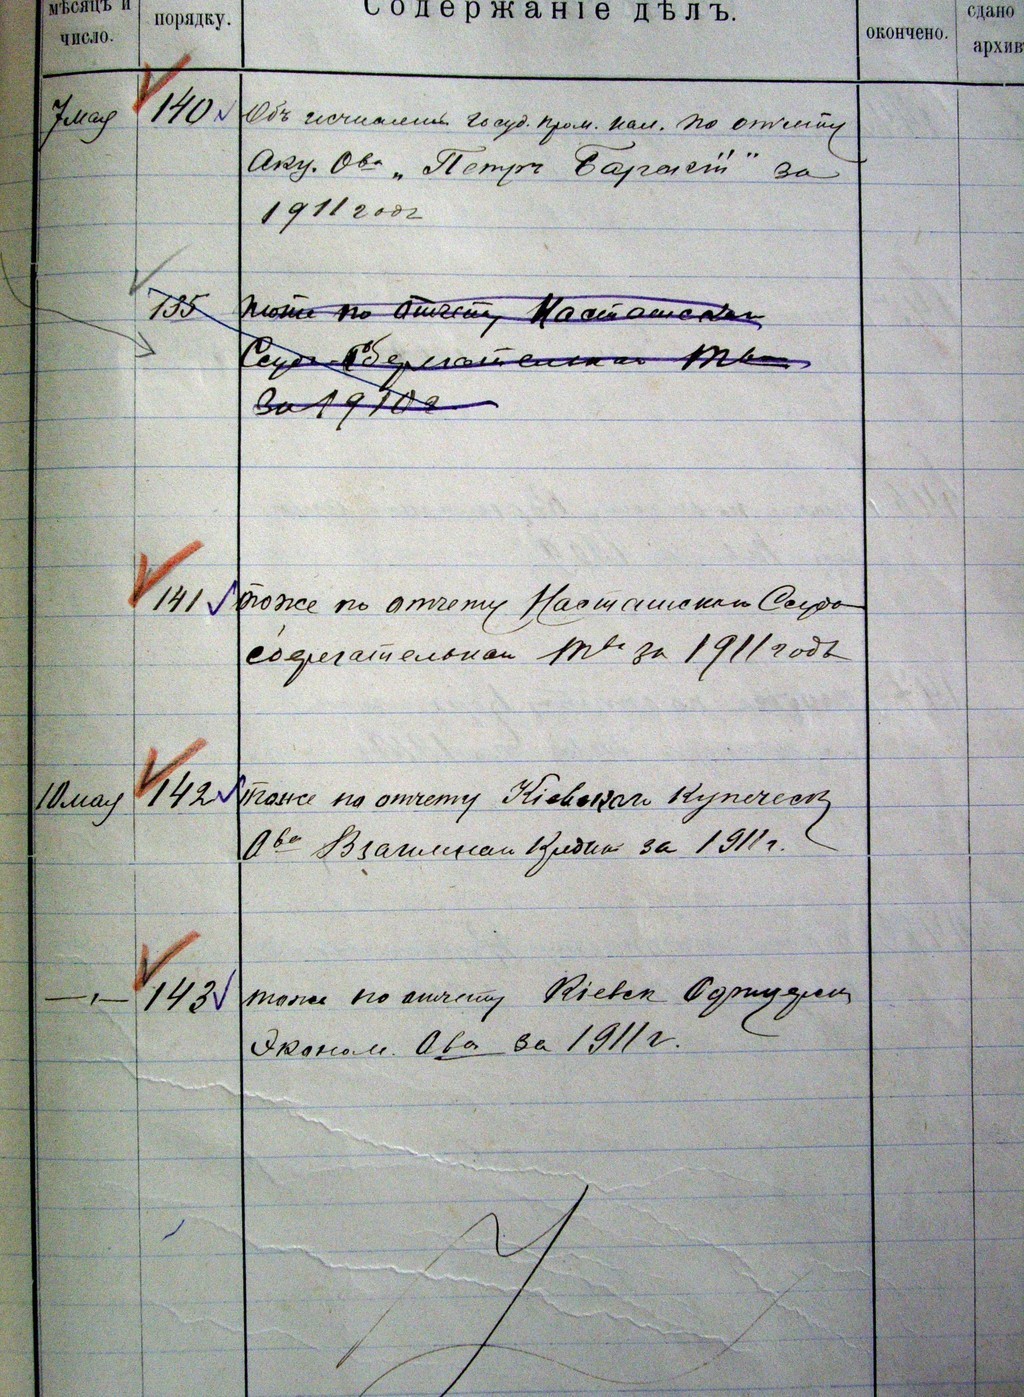 мѣсяцъ и
число.
порядку.
Содержаніе дѣлъ.
окончено.
сдано
архив
7 мая 140 Объ исчисленіи госуд. пром. нал. по отчету
Акц. О-ва „Петръ Барскій" за
1911 годъ
135 тоже по отчету Насташской
Ссудо-Сберегательнаго Т-ва
за 1910 г.
141 тоже по отчету Насташскаго Ссудо
сберегательнаго Т-ва за 1911 годъ
10 мая 142 тоже по отчету Кіевскаго Купеческ
О-ва Взаимнаго Кредит за 1911 г.
—„— 143 тоже по отчету Кіевск
Эконом. О-ва за 1911 г.